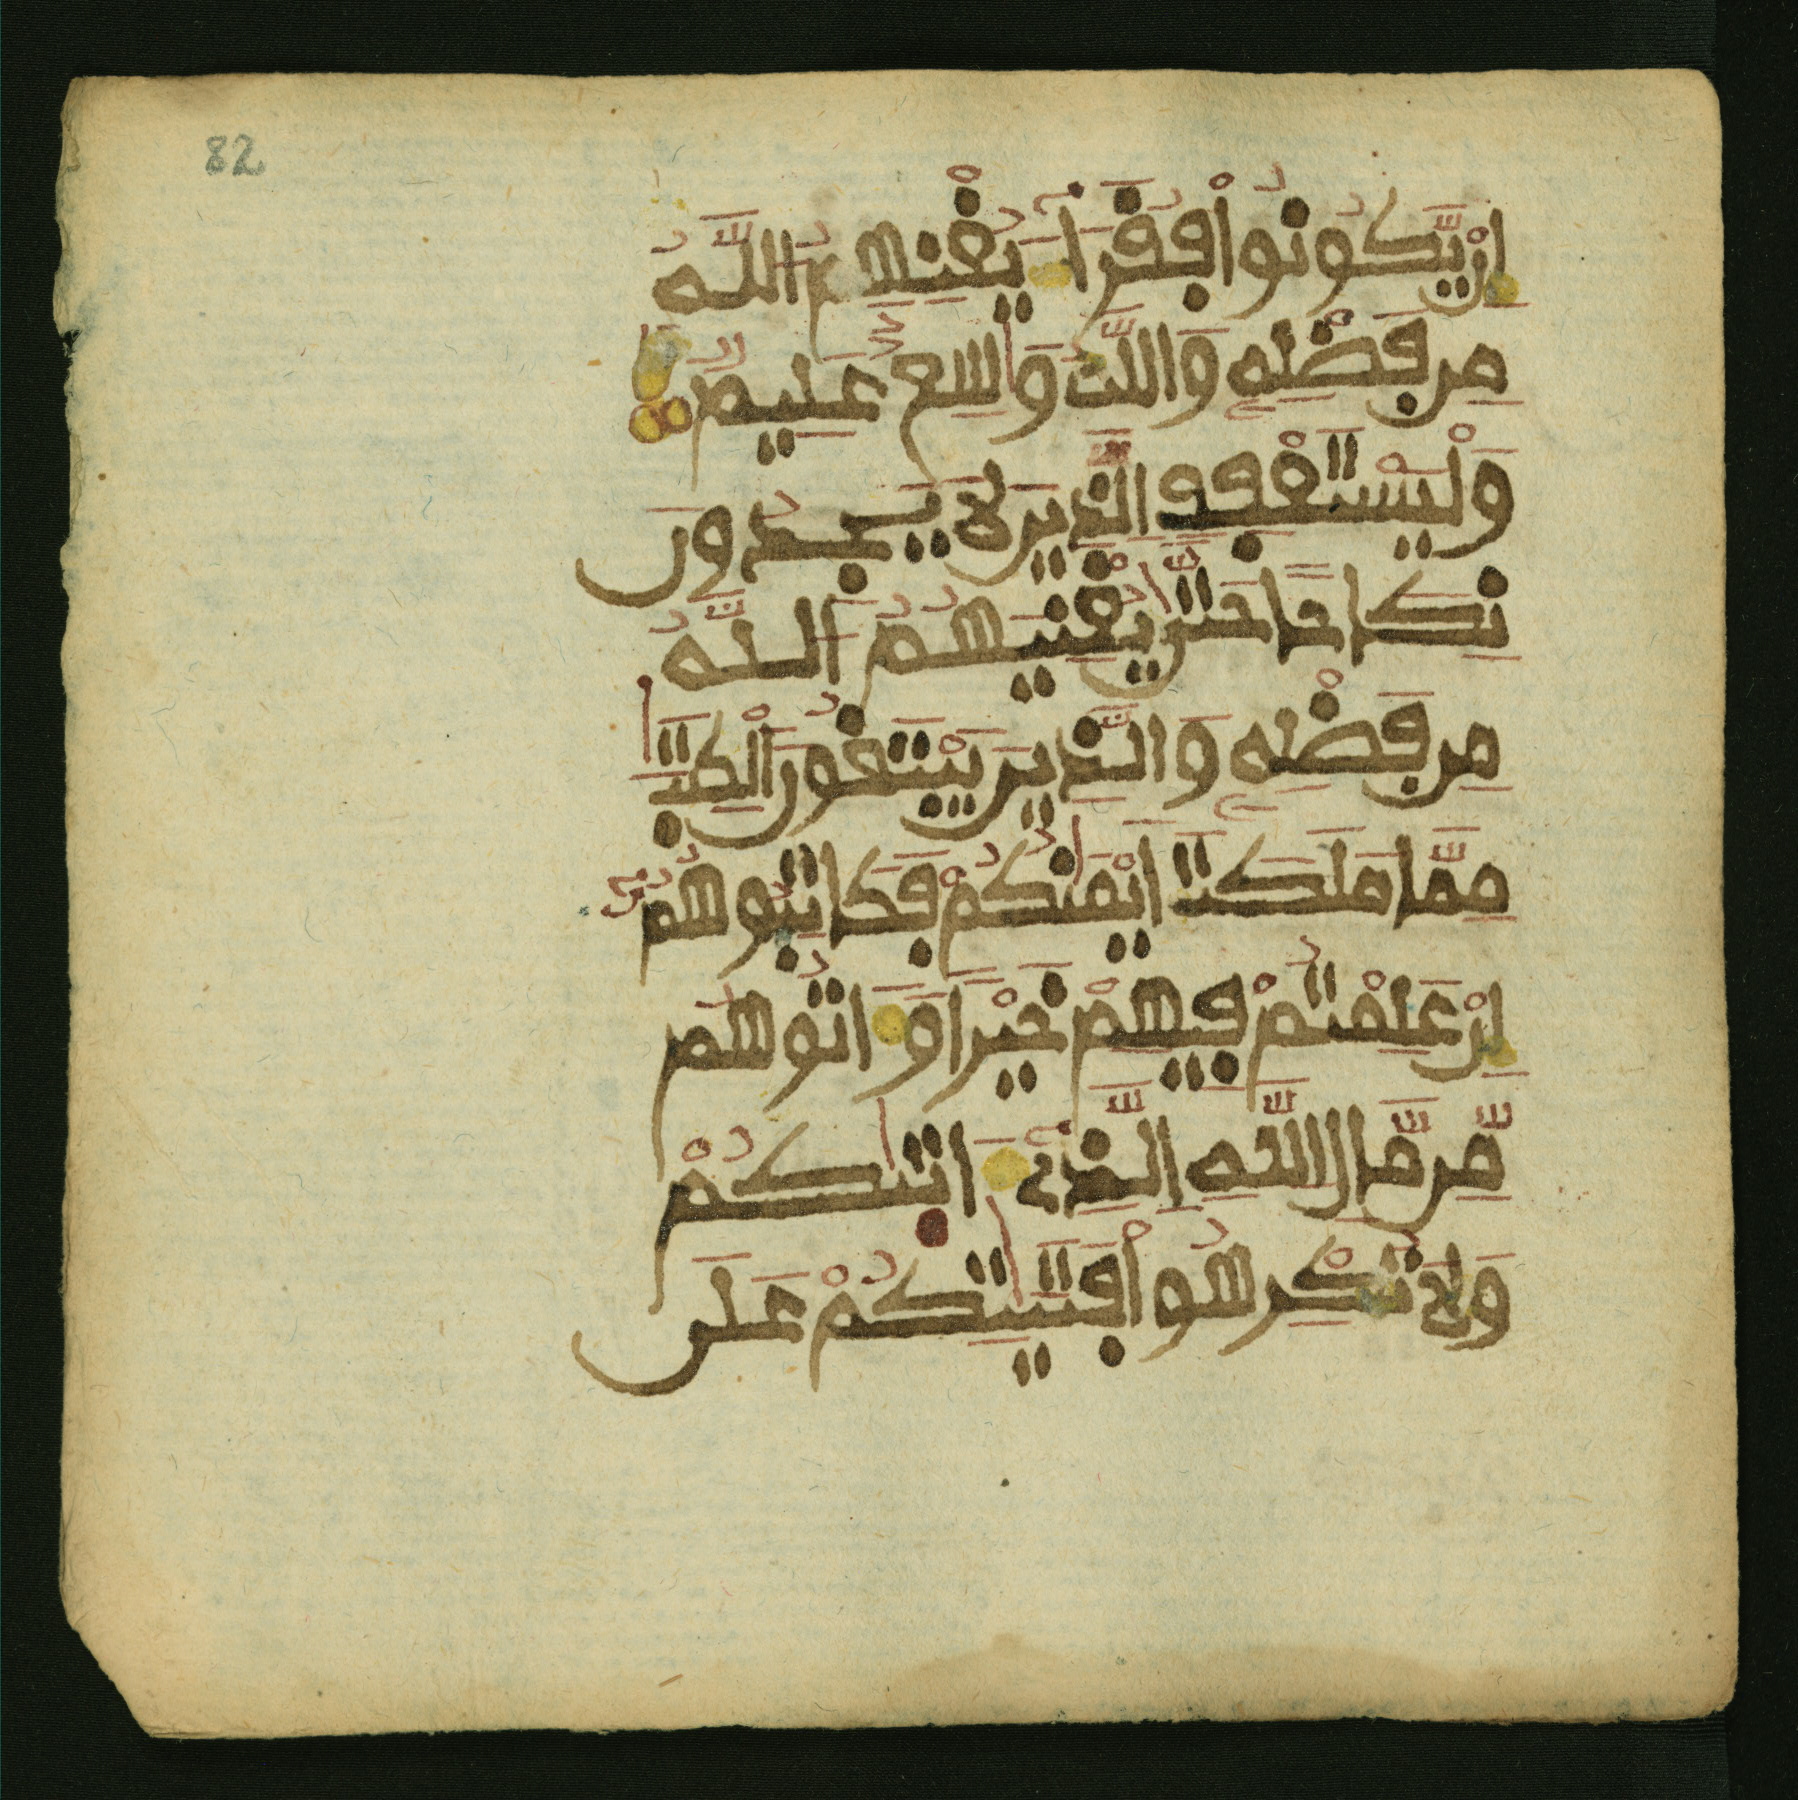 82
إِنْ يَّكُونُوا فُقَرَآءَ يُغْنِهِمُ اللَّهُ
مِن فَضْلِهِ وَاللَّهُ وَٰسِعٌ عَلِيمٌ
وَلْيَسْتَعْفِفِ الَّذِينَ لَا يَجِدُونَ
نِكَاحًا حَتَّىٰ يُغْنِيَهُمُ اللَّهُ
مِن فَضْلِهِ وَالَّذِينَ يَبْتَغُونَ الْكِتَٰبَ
مِمَّا مَلَكَتَ اَيْمَٰنُكُمْ فَكَاتِبُوهُمُۥٓ
إِنْ عَلِمْتُمْ فِيهِمْ خَيْرًا وَءَاتُوهُم
مِّن مَّالِ اللَّهِ الَّذِىٓ ءَاتَىٰكُمْ
وَلَا تُكْرِهُوا فَتَيَٰتِكُمْ عَلَى